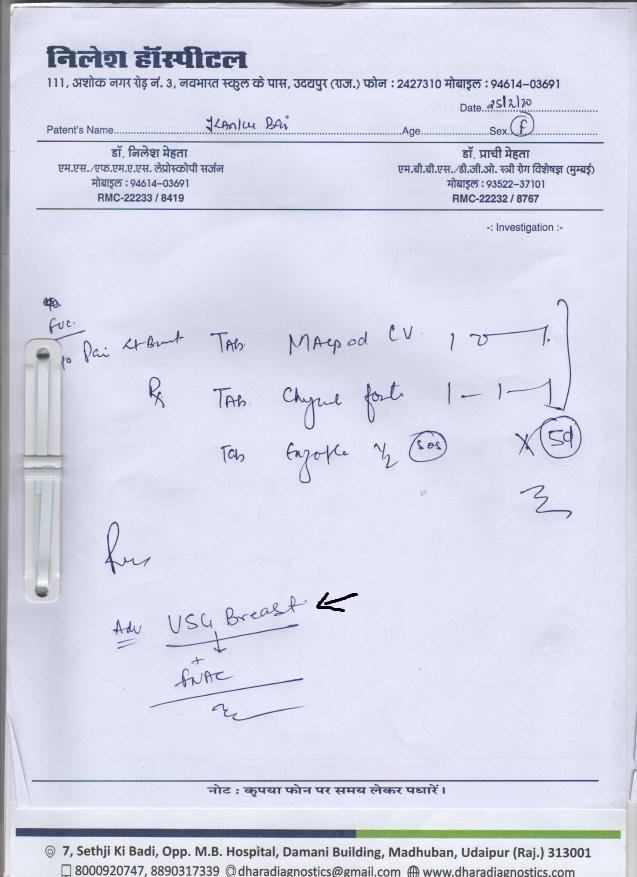 निलेश हॉस्पीटल
111, अशोक नगर रोड़ नं. 3, नवभारत स्कुल के पास, उदयपुर (राज.) फोन : 2427310 मोबाइल : 94614-03691
Date 25/2/20
Patent's Name Bai Age Sex f
डॉ. निलेश मेहता
एम.एस./एफ.एम.ए.एस. लेप्रोस्कोपी सर्जन
मोबाइल : 94614-03691
RMC-22233 / 8419
डॉ. प्राची मेहता
एम.बी.बी.एस./डी.जी.ओ. स्त्री रोग विशेषज्ञ (मुम्बई)
मोबाइल : 93522-37101
RMC-22232 / 8767
-: Investigation :-
TAB. CV.
Rx TAB. forte 1-1-1
Tab 1/2 sos x 5d
Adv USG Breast
+
FNAC
नोट : कृपया फोन पर समय लेकर पधारें।
7, Sethji Ki Badi, Opp. M.B. Hospital, Damani Building, Madhuban, Udaipur (Raj.) 313001
8000920747, 8890317339 @dharadiagnostics@gmail.com www.dharadiagnostics.com